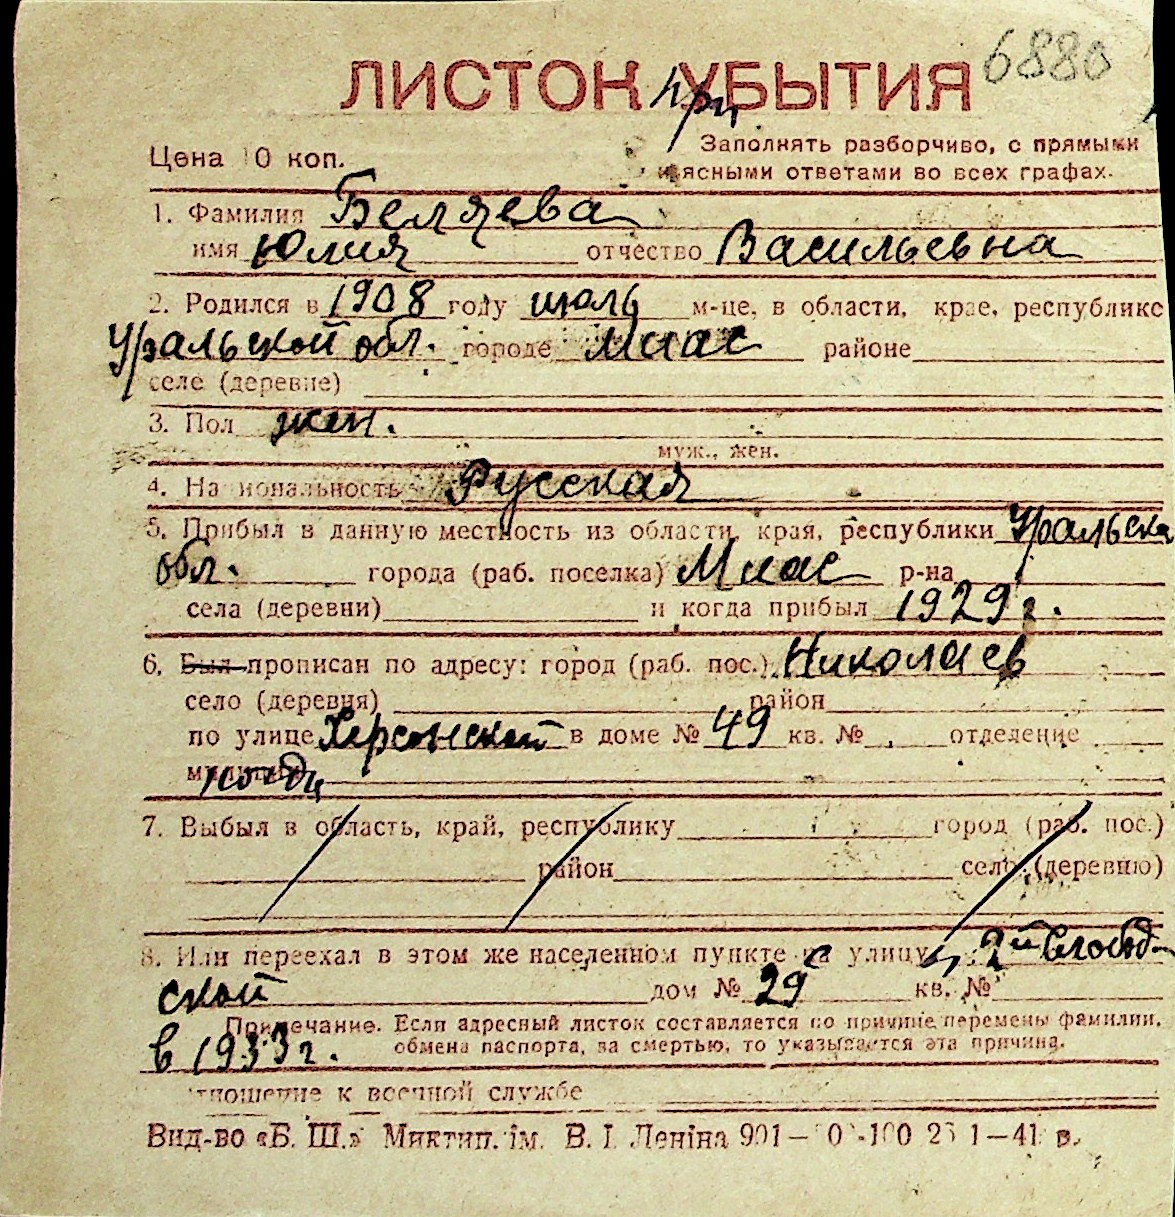 6880
ЛИСТОК УБЫТИЯ
при
Заполнять разборчиво, с прямыми
Цена 10 коп.
и ясными ответами во всех графах.
1. Фамилия Беляева
имя Юлия отчество Васильевна
2. Родился в 1908 году июль м-це, в области, крае, республике
Уральской обл. городе Миас районе
селе (деревне)
3. Пол жен.
муж., жен.
4. Национальность Русская
5. Прибыл в данную местность из области, края, республики Уральска
обл. города (раб. поселка) Миас р-на
села (деревни) и когда прибыл 1929 г.
6. Был прописан по адресу: город (раб. пос.) Николаев
село (деревня) район
по улице Херсонской в доме № 49 кв. № отделение
милиции
7. Выбыл в область, край, республику город (раб. пос.)
район село (деревню)
8. Или переехал в этом же населенном пункте на улицу 2й Слобод-
ской дом № 29 кв. №
Примечание. Если адресный листок составляется по причине перемены фамилии,
в 1933 г. обмена паспорта, за смертью, то указывается эта причина.
Отношение к военной службе
Вид-во «Б. Ш.» Миктип. ім. В. І. Леніна 901— 1—41 в.